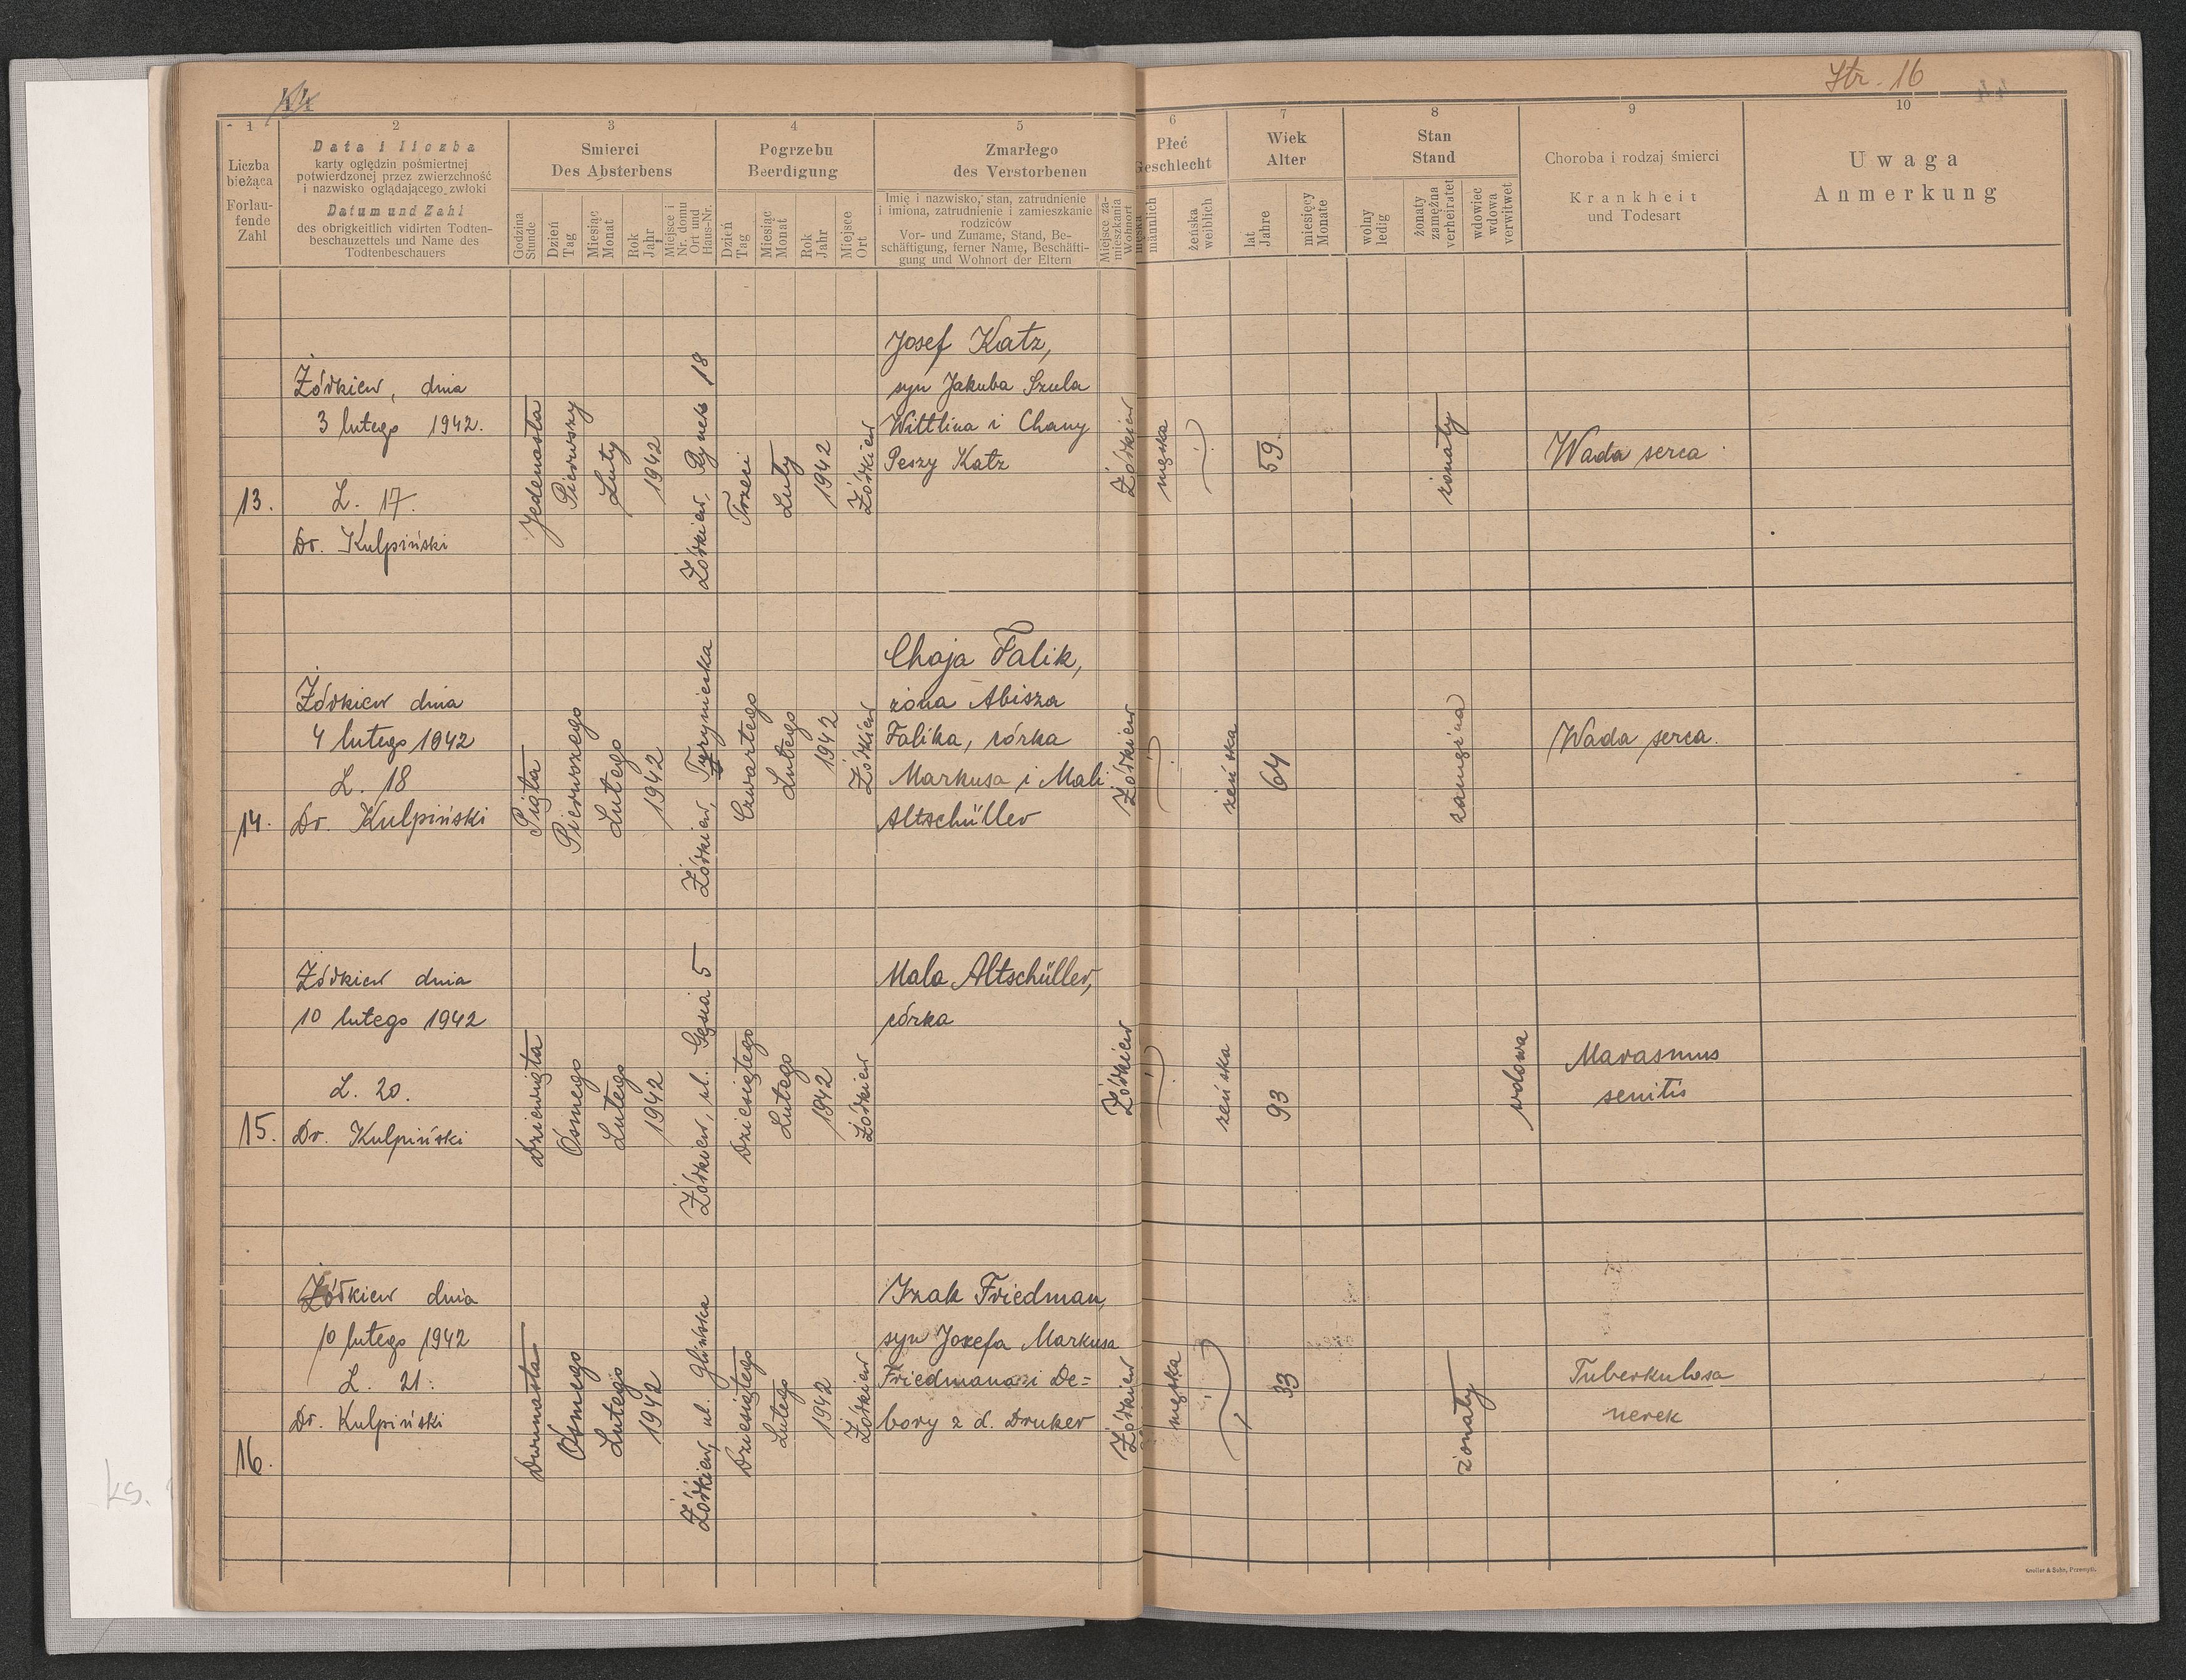 44
Str. 16
1
2
3
4
5
6
7
8
9
10
Liczba
bieżąca
Forlau-
fende
Zahl
Data i liczba
karty oględzin pośmiertnej
potwierdzonej przez zwierzchność
i nazwisko oglądającego zwłoki
Datum und Zahl
des obrigkeitlich vidirten Todten-
beschauzettels und Name des
Todtenbeschauers
Smierci
Des Absterbens
Godzina
Stunde
Dzień
Tag
Miesiąc
Monat
Rok
Jahr
Miejsce i
Nr. domu
Ort und
Haus-Nr.
Pogrzebu
Beerdigung
Dzień
Tag
Miesiąc
Monat
Rok
Jahr
Miejsce
Ort
Zmarłego
des Verstorbenen
Imię i nazwisko, stan, zatrudnienie
i imiona, zatrudnienie i zamieszkanie
rodziców
Vor- und Zuname, Stand, Be-
schäftigung, ferner Name, Beschäfti-
gung und Wohnort der Eltern
Miejsce za-
mieszkania
Wohnort
Płeć
Geschlecht
męska
männlich
żeńska
weiblich
Wiek
Alter
lat
Jahre
miesięcy
Monate
Stan
Stand
wolny
ledig
żonaty
zamężna
verheiratet
wdowiec
wdowa
verwitwet
Choroba i rodzaj śmierci
Krankheit
und Todesart
Uwaga
Anmerkung
13.
Żółkiew, dnia
3 lutego 1942.
L. 17.
Dr. Kulpiński
Jedenasta
Pierwszy
Luty
1942
Żółkiew, Rynek 18
Trzeci
Luty
1942
Żółkiew
Josef Katz,
syn Jakuba Szula
Wittlina i Chany
Peszy Katz
Żółkiew
męska
59
żonaty
Wada serca
14.
Żółkiew dnia
4 lutego 1942
L. 18
Dr. Kulpiński
Piąta
Pierwszego
Lutego
1942
Żółkiew,
Czwartego
Lutego
1942
Żółkiew
Chaja Falik,
żona Abisza
Falika, córka
Markusa i Mali
Altschüller
Żółkiew
żeńska
64
zamężna
Wada serca.
15.
Żółkiew dnia
10 lutego 1942
L. 20.
Dr. Kulpiński
Dziewiąta
Ósmego
Lutego
1942
Żółkiew, ul. Gęsia 5
Dziesiątego
Lutego
1942
Żółkiew
Mala Altschüller,
córka
Żółkiew
żeńska
93
wdowa
Marasmus
senitis
16.
Żółkiew dnia
10 lutego 1942
L. 21.
Dr. Kulpiński
Dwunasta
Ósmego
Lutego
1942
Żółkiew, ul. Glińska
Dziesiątego
Lutego
1942
Żółkiew
Izak Friedman,
syn Jozefa Markusa
Friedmana i De=
bory z d. Druker
Żółkiew
męska
33
żonaty
Tuberkulosa
nerek
ks.
Knoller & Sohn, Przemyśl.